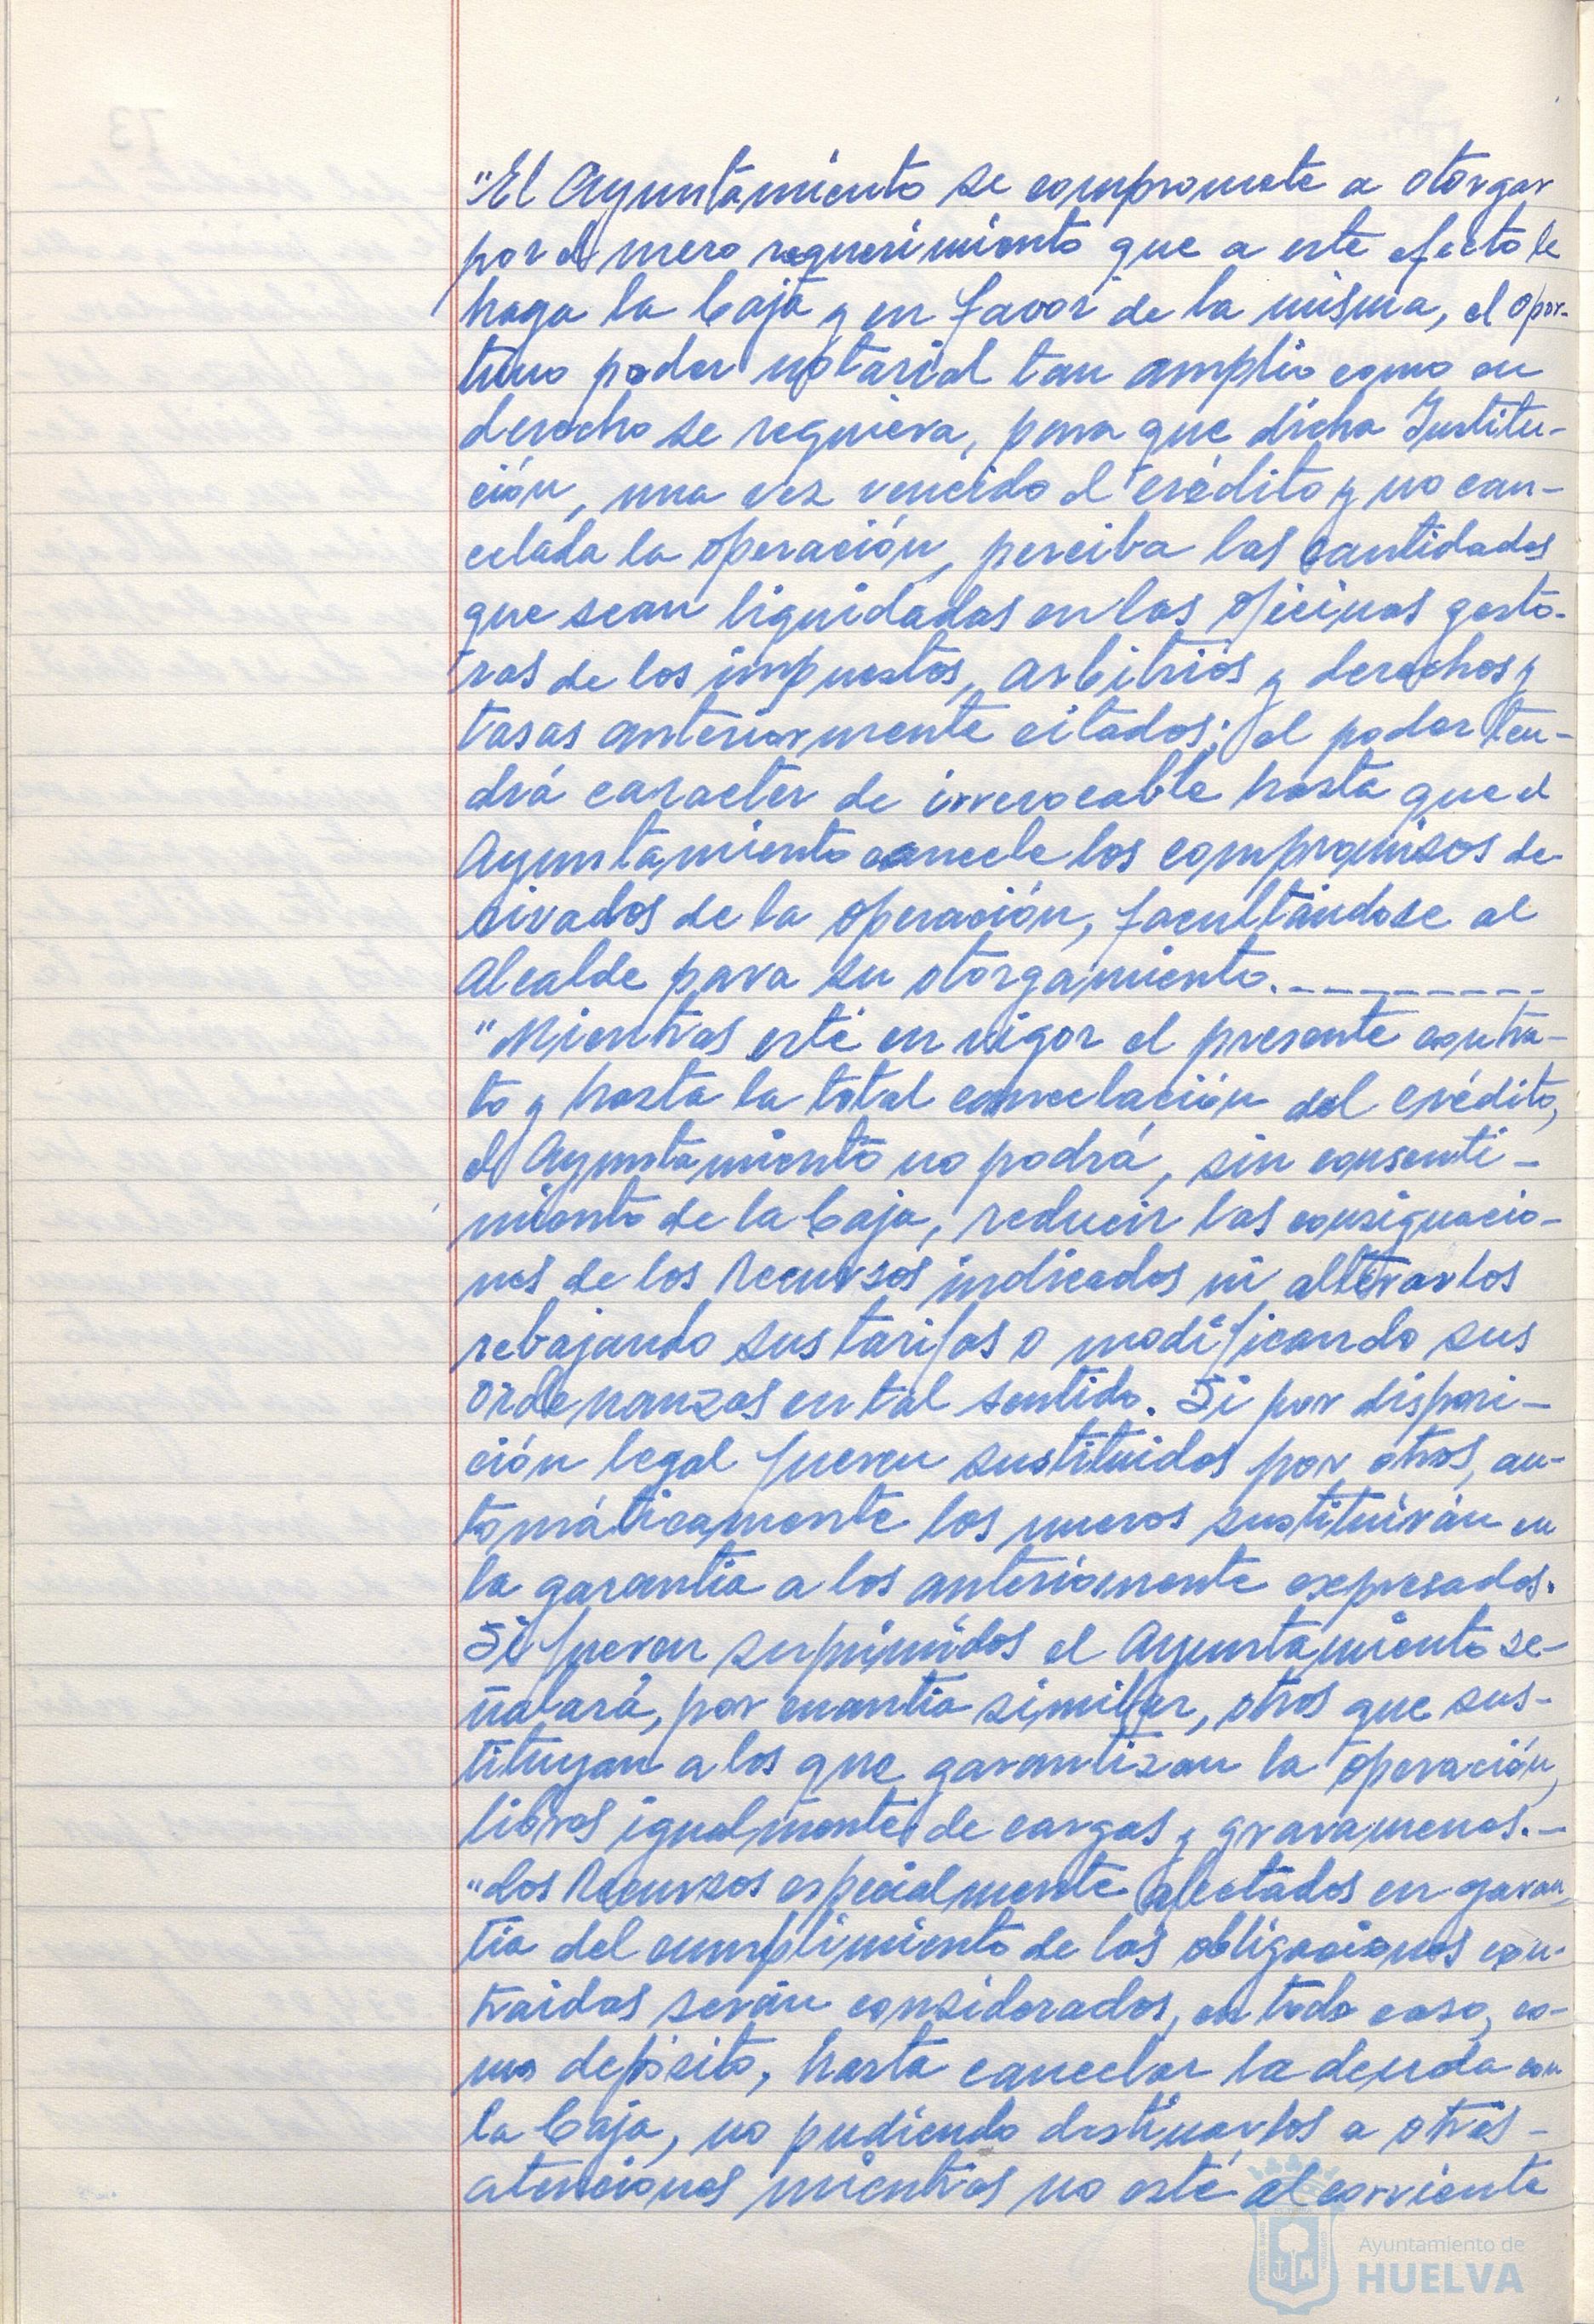 "El Ayuntamiento se compromete a otorgar
por el mero requerimiento que a este efecto le
haga la Caja y en favor de la misma, el opor-
tuno poder notarial tan amplio como en
derecho se requiera, para que dicha Institu-
ción, una vez vencido el crédito y no can-
celada la operación, perciba las cantidades
que sean liquidadas en las oficinas gesto-
ras de los impuestos, arbitrios y derechos y
tasas anteriormente citados; el poder ten-
drá caracter de irrevocable hasta que el
Ayuntamiento cancele los compromisos de-
rivados de la operación, facultándose al
Alcalde para su otorgamiento.---------
"Mientras esté en vigor el presente contra-
to y hasta la total cancelación del crédito,
el Ayuntamiento no podrá, sin consenti-
miento de la Caja, reducir las consignacio-
nes de los Recursos indicados ni alterarlos
rebajando sus tarifas o modificando sus
Ordenanzas en tal sentido. Si por disposi-
ción legal fueren sustituidos por otros, au-
tomáticamente los nuevos sustituirán en
la garantía a los anteriormente expresados.
Si fueren suprimidos el Ayuntamiento se-
ñalará, por cuantía similar, otros que sus-
tituyan a los que garantizan la operación,
libres igualmente de cargas y gravamenes.-
"Los Recursos especialmente afectados en garan-
tía del cumplimiento de las obligaciones con-
traidas serán considerados, en todo caso, co-
mo depósito, hasta cancelar la deuda con
la Caja, no pudiendo destinarlos a otras -
atenciones mientras no esté al corriente
Ayuntamiento de
HUELVA
73